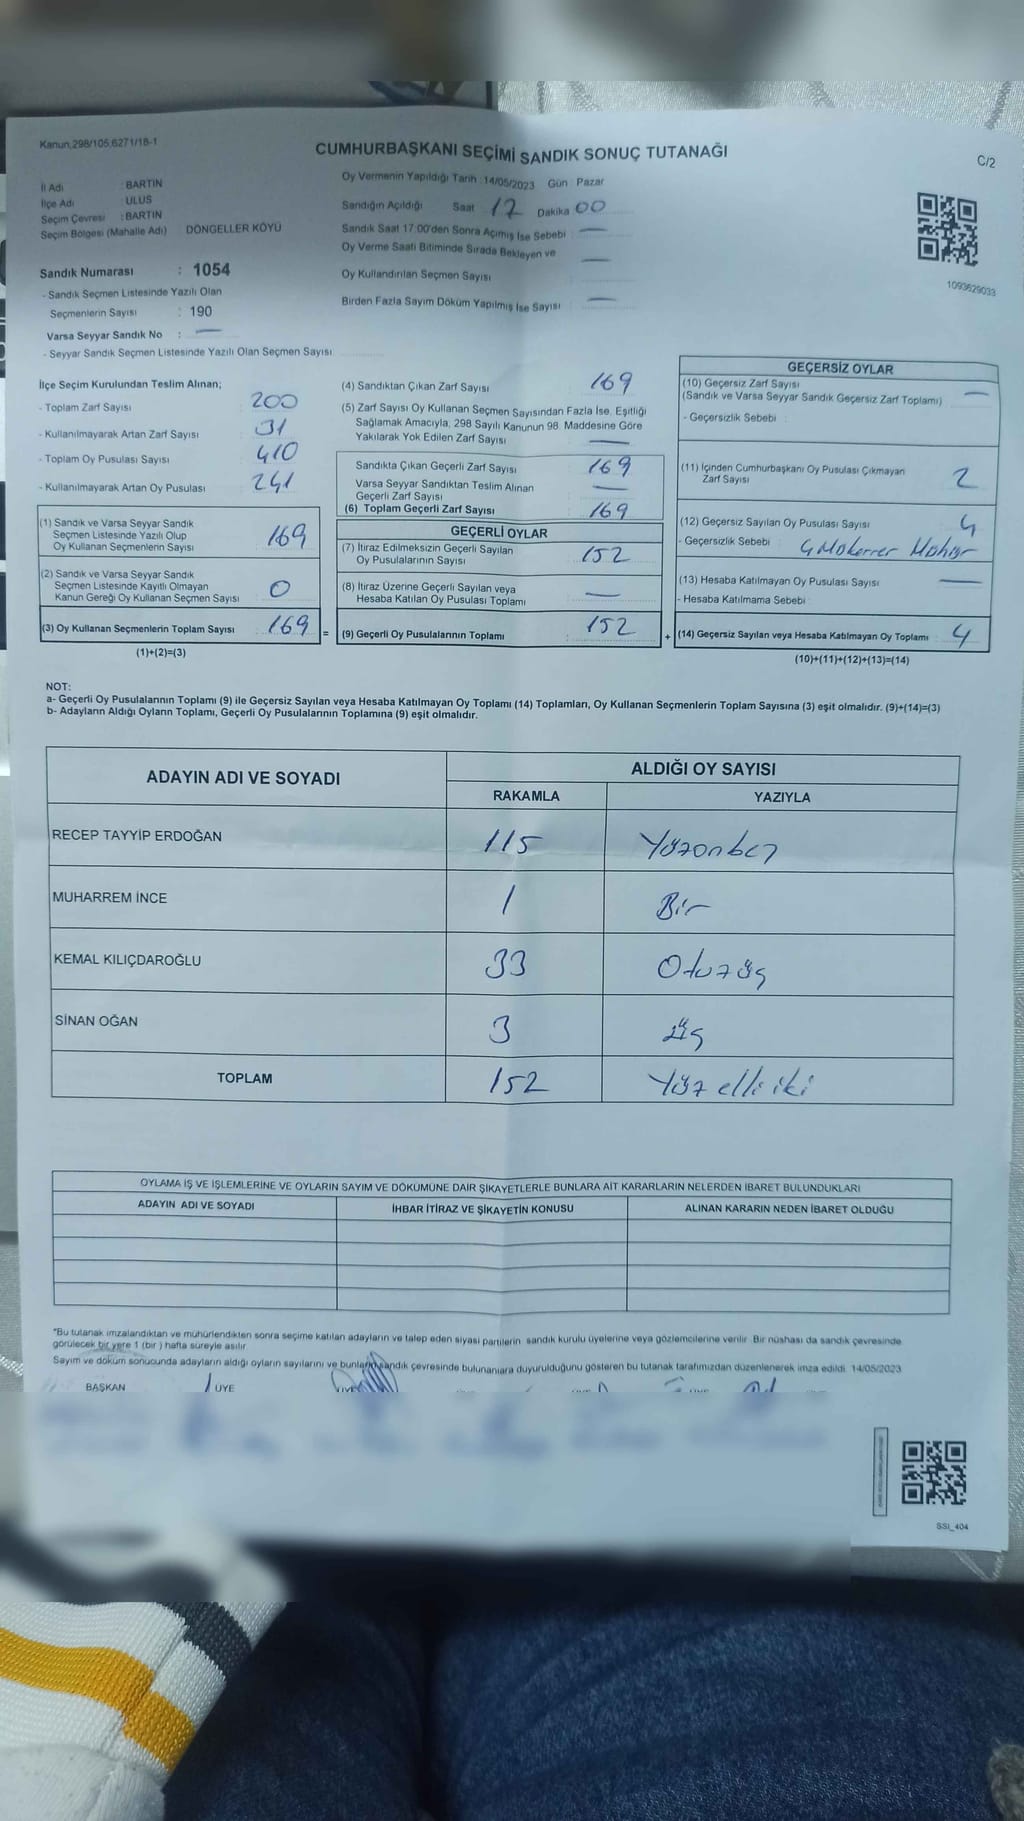 Kanun,298/105,6271/18-1
CUMHURBAŞKANI SEÇİMİ SANDIK SONUÇ TUTANAĞI
C/2
İl Adı : BARTIN
İlçe Adı : ULUS
Seçim Çevresi : BARTIN
Seçim Bölgesi (Mahalle Adı) DÖNGELLER KÖYÜ
Sandık Numarası : 1054
- Sandık Seçmen Listesinde Yazılı Olan
Seçmenlerin Sayısı : 190
Varsa Seyyar Sandık No : —
- Seyyar Sandık Seçmen Listesinde Yazılı Olan Seçmen Sayısı
Oy Vermenin Yapıldığı Tarih : 14/05/2023 Gün Pazar
Sandığın Açıldığı Saat 17 Dakika 00
Sandık Saat 17:00'den Sonra Açımış İse Sebebi : —
Oy Verme Saati Bitiminde Sırada Bekleyen ve —
Oy Kullandırılan Seçmen Sayısı
Birden Fazla Sayım Döküm Yapılmış İse Sayısı —
1093629033
İlçe Seçim Kurulundan Teslim Alınan;
- Toplam Zarf Sayısı 200
- Kullanılmayarak Artan Zarf Sayısı 31
- Toplam Oy Pusulası Sayısı 410
- Kullanılmayarak Artan Oy Pusulası 241
(1) Sandık ve Varsa Seyyar Sandık
Seçmen Listesinde Yazılı Olup
Oy Kullanan Seçmenlerin Sayısı 169
(2) Sandık ve Varsa Seyyar Sandık
Seçmen Listesinde Kayıtlı Olmayan
Kanun Gereği Oy Kullanan Seçmen Sayısı 0
(3) Oy Kullanan Seçmenlerin Toplam Sayısı : 169 =
(1)+(2)=(3)
(4) Sandıktan Çıkan Zarf Sayısı 169
(5) Zarf Sayısı Oy Kullanan Seçmen Sayısından Fazla İse, Eşitliği
Sağlamak Amacıyla, 298 Sayılı Kanunun 98. Maddesine Göre
Yakılarak Yok Edilen Zarf Sayısı —
Sandıkta Çıkan Geçerli Zarf Sayısı : 169
Varsa Seyyar Sandıktan Teslim Alınan
Geçerli Zarf Sayısı —
(6) Toplam Geçerli Zarf Sayısı 169
GEÇERLİ OYLAR
(7) İtiraz Edilmeksizin Geçerli Sayılan
Oy Pusulalarının Sayısı 152
(8) İtiraz Üzerine Geçerli Sayılan veya
Hesaba Katılan Oy Pusulası Toplamı —
(9) Geçerli Oy Pusulalarının Toplamı : 152 +
GEÇERSİZ OYLAR
(10) Geçersiz Zarf Sayısı —
(Sandık ve Varsa Seyyar Sandık Geçersiz Zarf Toplamı)
- Geçersizlik Sebebi :
(11) İçinden Cumhurbaşkanı Oy Pusulası Çıkmayan
Zarf Sayısı 2
(12) Geçersiz Sayılan Oy Pusulası Sayısı 4
- Geçersizlik Sebebi : 4 Mükerrer Mühür
(13) Hesaba Katılmayan Oy Pusulası Sayısı —
- Hesaba Katılmama Sebebi
(14) Geçersiz Sayılan veya Hesaba Katılmayan Oy Toplamı : 4
(10)+(11)+(12)+(13)=(14)
NOT:
a- Geçerli Oy Pusulalarının Toplamı (9) ile Geçersiz Sayılan veya Hesaba Katılmayan Oy Toplamı (14) Toplamları, Oy Kullanan Seçmenlerin Toplam Sayısına (3) eşit olmalıdır. (9)+(14)=(3)
b- Adayların Aldığı Oyların Toplamı, Geçerli Oy Pusulalarının Toplamına (9) eşit olmalıdır.
ADAYIN ADI VE SOYADI
ALDIĞI OY SAYISI
RAKAMLA YAZIYLA
RECEP TAYYİP ERDOĞAN 115 Yüzonbeş
MUHARREM İNCE 1 Bir
KEMAL KILIÇDAROĞLU 33 Otuzüç
SİNAN OĞAN 3 üç
TOPLAM 152 Yüz elli iki
OYLAMA İŞ VE İŞLEMLERİNE VE OYLARIN SAYIM VE DÖKÜMÜNE DAİR ŞİKAYETLERLE BUNLARA AİT KARARLARIN NELERDEN İBARET BULUNDUKLARI
ADAYIN ADI VE SOYADI İHBAR İTİRAZ VE ŞİKAYETİN KONUSU ALINAN KARARIN NEDEN İBARET OLDUĞU
*Bu tutanak imzalandıktan ve mühürlendikten sonra seçime katılan adayların ve talep eden siyasi partilerin sandık kurulu üyelerine veya gözlemcilerine verilir. Bir nüshası da sandık çevresinde
görülecek bir yere 1 (bir ) hafta süreyle asılır
Sayım ve döküm sonucunda adayların aldığı oyların sayılarını ve bunların sandık çevresinde bulunanlara duyurulduğunu gösteren bu tutanak tarafımızdan düzenlenerek imza edildi. 14/05/2023
BAŞKAN ÜYE
SSI_404